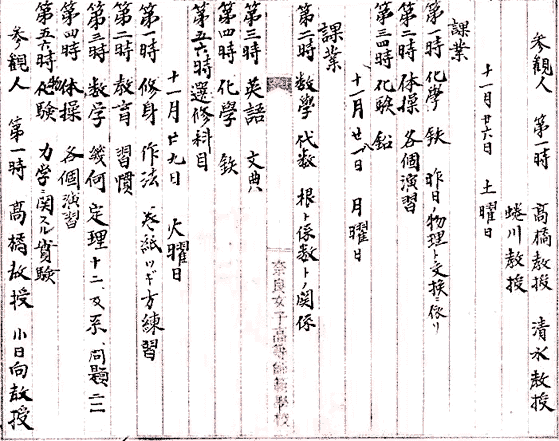 参観人 第一時 高橋教授 清水教授
蜷川教授
十一月廿六日 土曜日
課業
第一時 化学 鉄 昨日ノ物理ト交換ニ依リ
第二時 体操 各個演習
第三四時 化験 鉛
十一月廿八日 月曜日
課業
第二時 数学 代数 根ト係数トノ関係
第三時 英語 文典
第四時 化学 鉄
第五六時 選修科目
十一月廿九日 火曜日
第一時 修身 作法 巻紙ツギ方練習
第二時 教育 習慣
第三時 数学 幾何 定理十二、及系、問題二二
第四時 体操 各個演習
第五六時 物験 力学ニ関スル実験
参観人 第一時 高橋教授 小日向教授
奈良女子高等師範学校